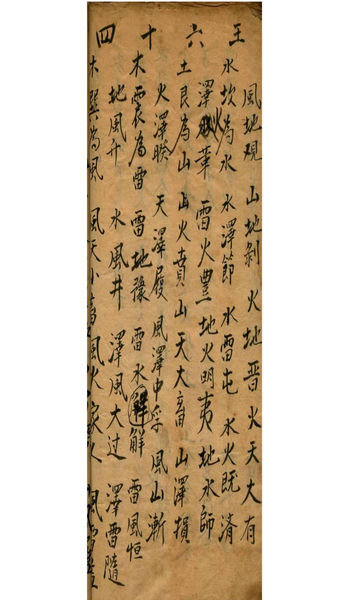 王六十四
風地观 山地剝 火地晋 火天大有
水坎為水 水澤節 水雷屯 水火既濟
澤火革 雷火豊 地火明夷 地水師
土艮為山 山火賁 山天大畜 山澤損
火澤睽 天澤履 風澤中孚 風山漸
木震為雷 雷地豫 雷水解解 雷風恒
地風升 水風井 澤風大过 澤雷隨
木巽為風 風天小畜 風火家人 風雷益